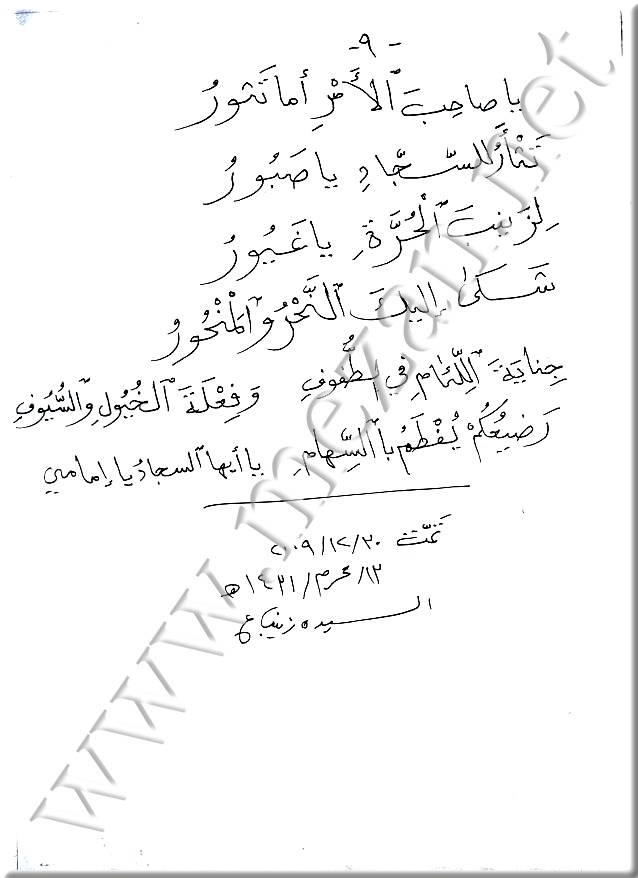 -٩-
يا صاحِبَ ٱلأَمْرِ أما تَثورُ
تَثْأَرُ للسّجّادِ يا صَبُورُ
لِزَينبَ ٱلْحُرَّةِ يا غَيُورُ
شَكىٰ إليكَ ٱلنَّحْرُ وٱلْمَنْحُورُ
جِنايَةَ ٱللِّئامِ في ٱلطُّفوفِ وَفِعْلَةَ ٱلخُيُولِ وٱلسُّيُوفِ
رَضيعُكُمْ يُفْطَمُ بٱلسِّهامِ يا أيها ٱلسجادُ يا إمامي
تمّت ٢٠٠٩/١٢/٣٠
١٣/محرم/١٤٣١هـ
السيده زينب ع
www.mezan.net